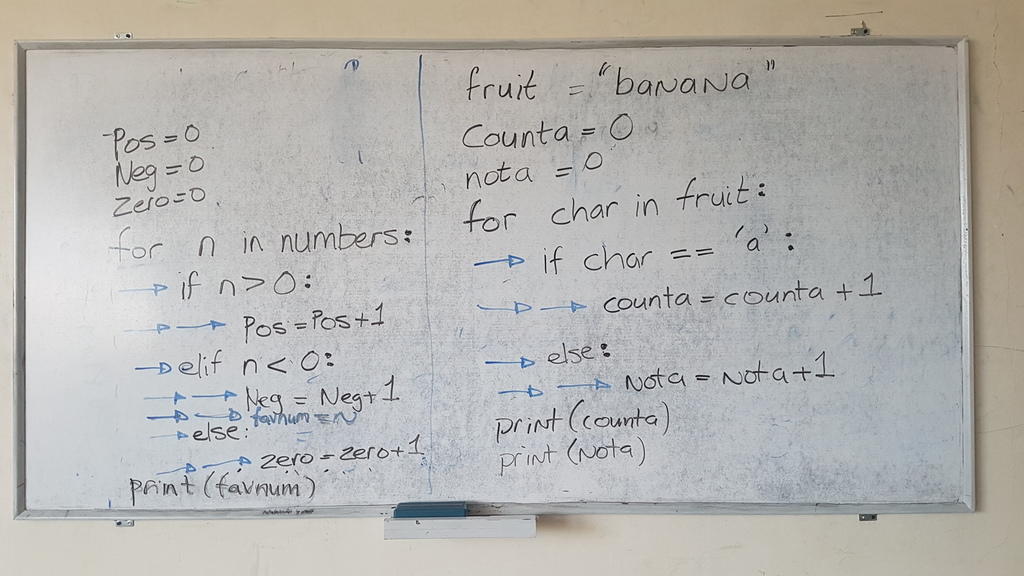 Pos = 0
Neg = 0
zero = 0
for n in numbers:
→ if n > 0:
→ → Pos = Pos + 1
→ elif n < 0:
→ → Neg = Neg + 1
→ → favnum = N
→ else:
→ → zero = zero + 1
print (favnum)
fruit = "baNaNa"
Counta = 0
nota = 0
for char in fruit:
→ if char == 'a':
→ → counta = counta + 1
→ else:
→ → Nota = Nota + 1
print (counta)
print (Nota)